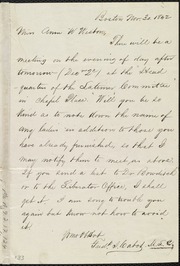 Boston Nov. 30 1842
Miss Anne W. Weston,
There will be a
meeting on the evening of day after
tomorrow - (Dec 2d) at the Head
quarters of the Latimer Committee
in Chapel Place. Will you be so
kind as to note down the names of
any ladies in addition to those you
have already furnished so that I
may notify them to meet as above
If you send a list to Dr Bowditch
or to the Liberator Office, I shall
get it. I am sorry to trouble you
again but know not how to avoid
it.
Fred. S. Cabot